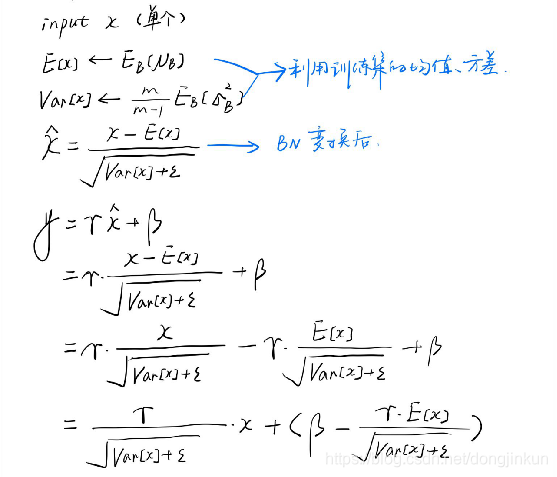 input x (单个)
E[x] ← E_B[μ_B]
利用训练集的均值、方差.
Var[x] ← m/(m-1) E_B[σ_B^2]
x̂ = (x - E[x]) / √(Var[x]+ε) → BN 变换后.
y = γ x̂ + β
= γ · (x - E[x]) / √(Var[x]+ε) + β
= γ · x / √(Var[x]+ε) - γ · E[x] / √(Var[x]+ε) + β
= γ / √(Var[x]+ε) · x + (β - γ · E[x] / √(Var[x]+ε))
https://blog.csdn.net/dongjinkun